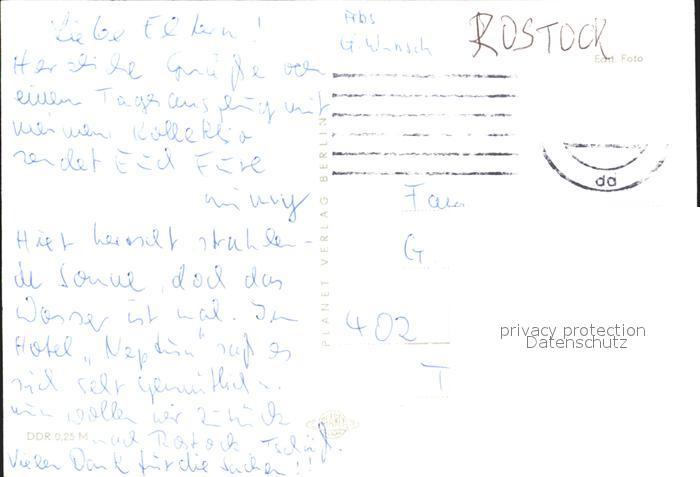 Liebe Eltern!
Herzliche Grüße von
einem Tagesausflug mit
meinem Kollektiv
sendet Euch Eure
Hier herrscht strahlen-
de Sonne, doch das
Wasser ist kal. Im
Hotel „Neptun“ saß es
sich sehr gemütlich.
nun wollen wir zurück
nach Rostock. Tschüß.
Vielen Dank für die Sachen!!
DDR 0,25 M
PLANET VERLAG BERLIN
Abs
G. Wunsch
ROSTOCK
Foto
da
Fam
G.
402
T
privacy protection
Datenschutz